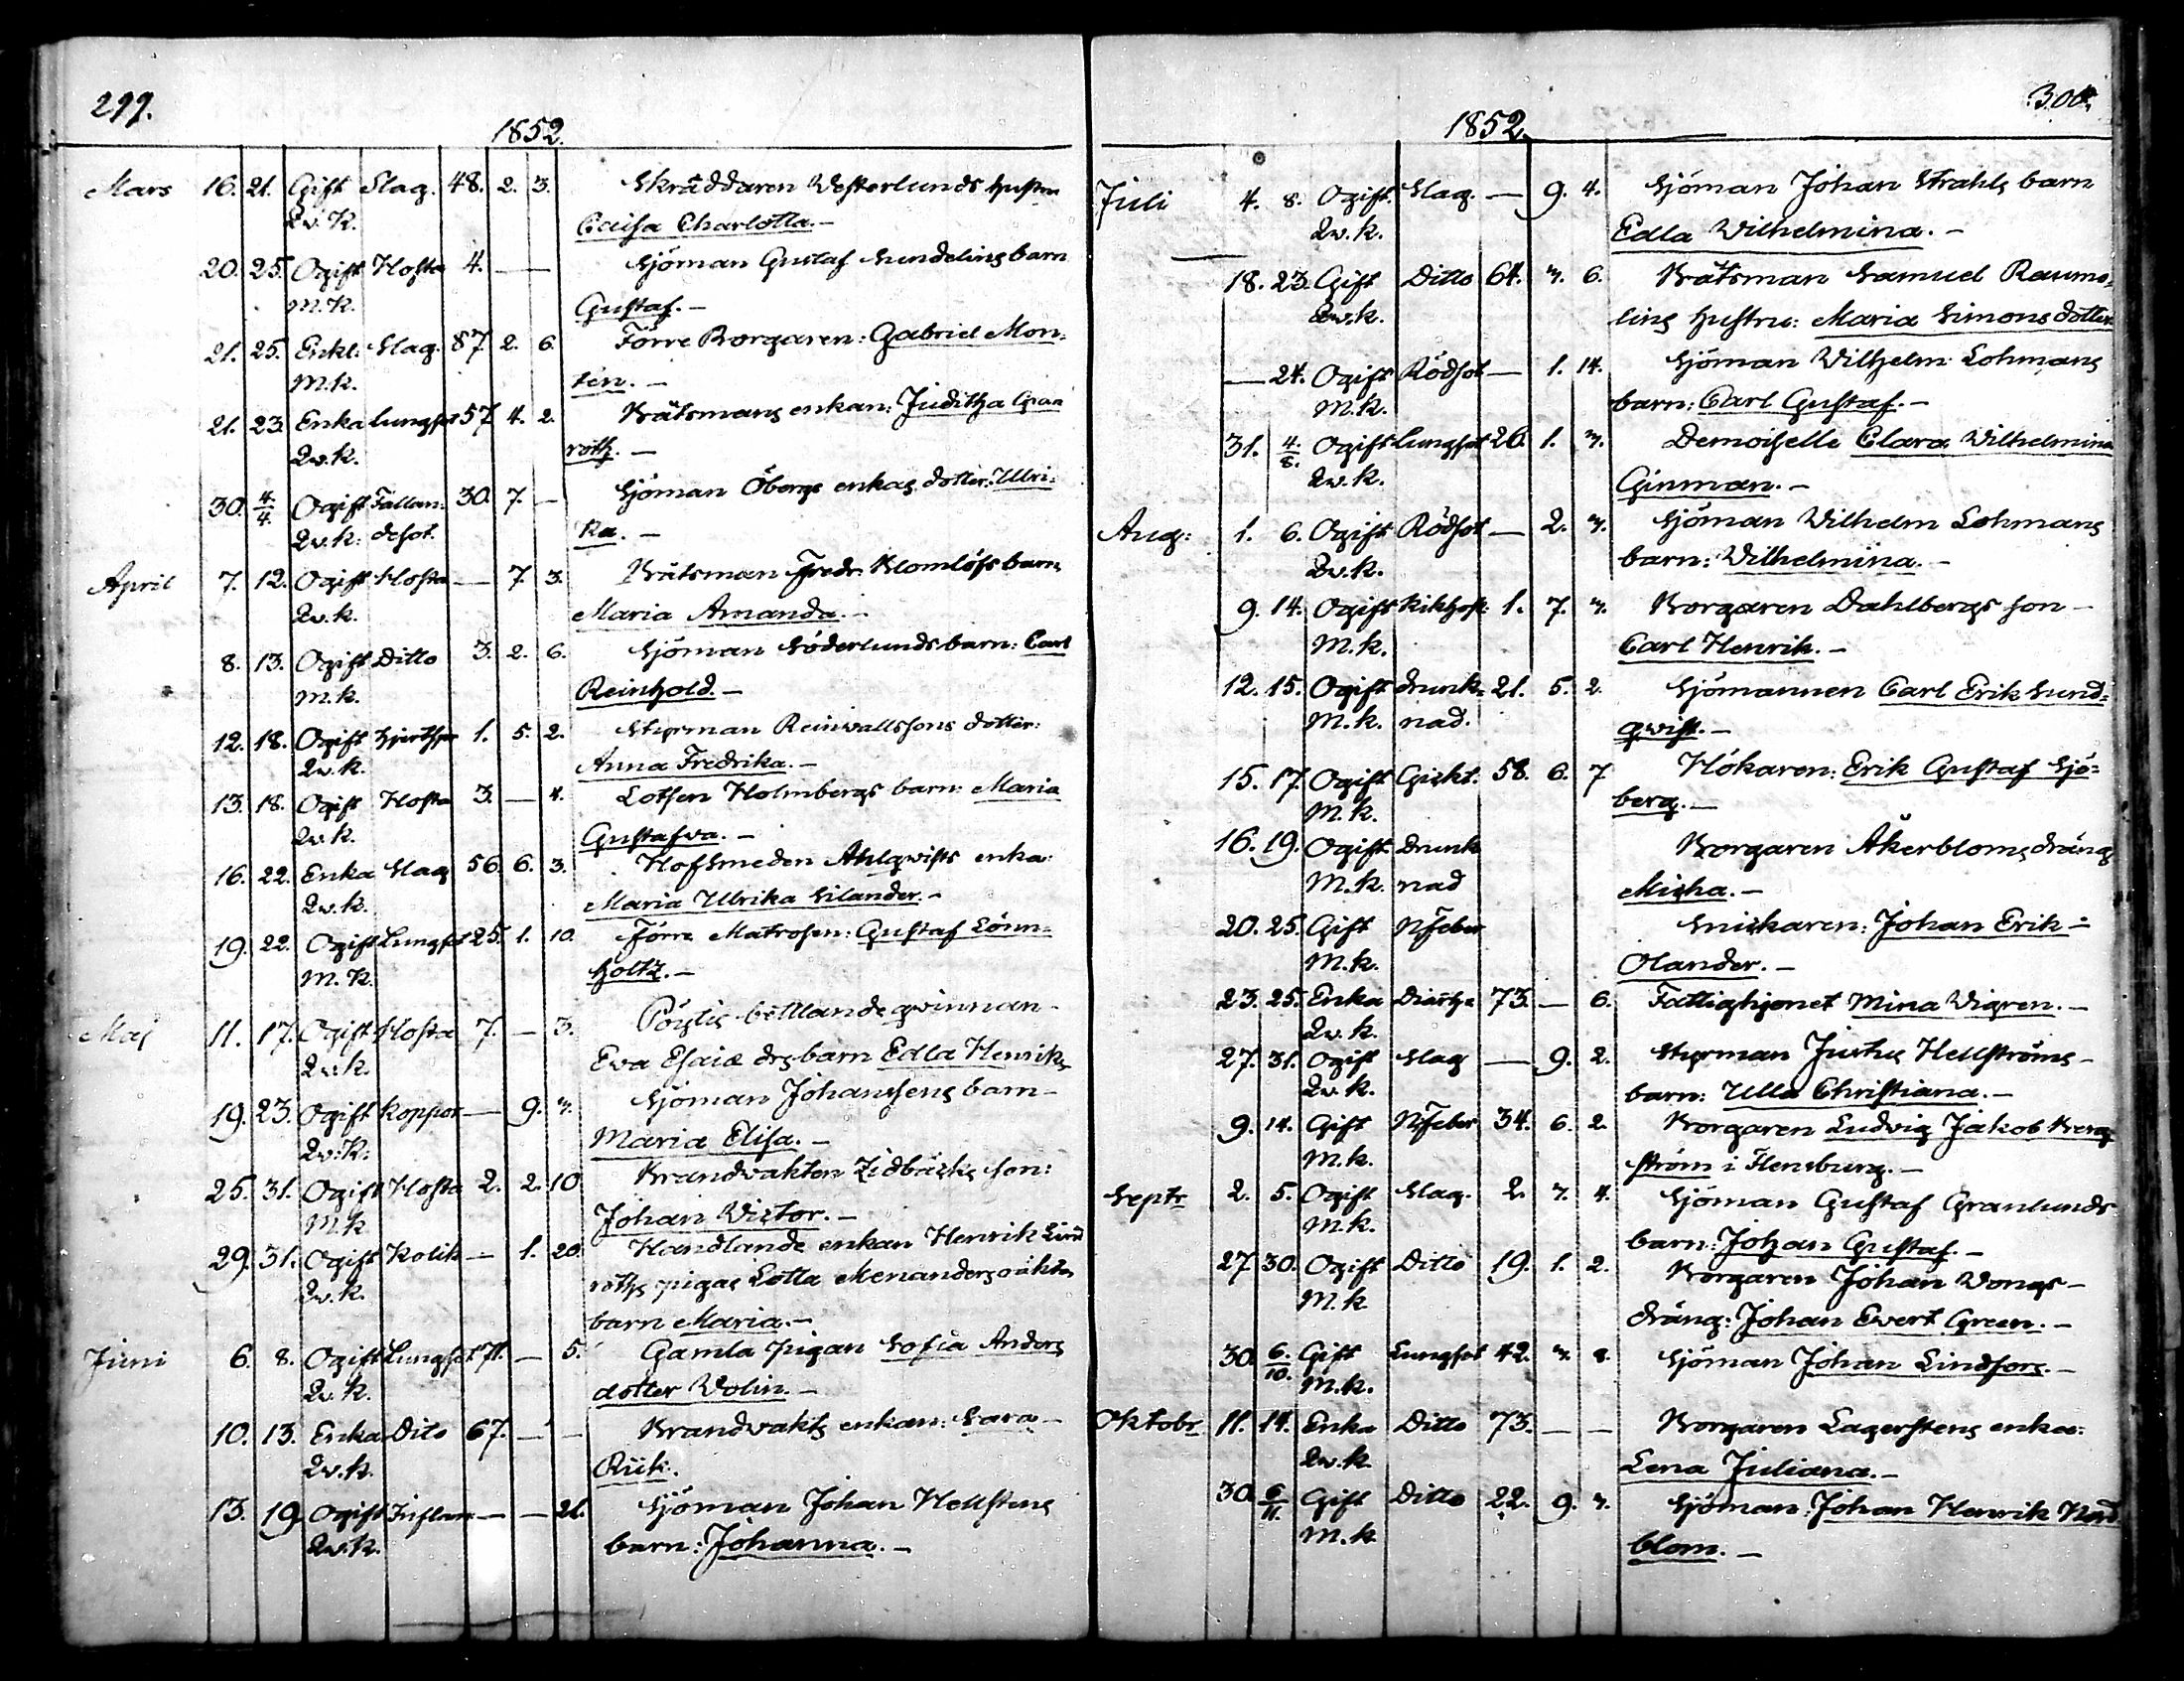 299.
1852.
Mars 16. 21. Gift Slag. 48. 2. 3. Skräddaren Westerlunds hustru
Qv. K. Caisa Charlotta. –
20. 25. Ogift Hosta 4. — — Sjöman Gustaf Sundelins barn
M.K. Gustaf. –
21. 25. Enkl. Slag. 87. 2. 6. Förre Borgaren: Gabriel Mon-
M.k. tén. –
21. 23. Enka Lungsot 57 4. 2. Båtsmans enkan: Juditha Graa
Qv.k. roth. –
30. 4/4. Ogift Fallan- 30. 7. — Sjöman Öbergs enkas dotter: Ulri-
Qv.k: desot. ka. –
April 7. 12. Ogift Hosta — 7. 3. Båtsman Fredr. Blomlöfs barn
Qv.k. Maria Amanda. –
8. 13. Ogift Ditto 3. 2. 6. Sjöman Söderlunds barn: Carl
M.k. Reinhold. –
12. 18. Ogift 1. 5. 2. Styrman Reinvallssons dotter:
Qv.k. Anna Fredrika. –
13. 18. Ogift Hosta 3. — 4. Lotsen Holmbergs barn: Maria
Qv.k. Gustafva. –
16. 22. Enka Slag 56. 6. 3. Hofsmeden Ahlqwists enka:
Qv.k. Maria Ulrika Silander. –
19. 22. Ogift Lungsot 25. 1. 10. Förre Matrosen: Gustaf Lönn-
M.K. holtz. –
Maj 11. 17. Ogift Hosta 7. — 3. Pöytis bettlande qwinnan –
Qv.k. Eva Esaiæ drs barn Edla Henriks
19. 23. Ogift Koppor — 9. ". Sjöman Johanssens barn –
Qv.K. Maria Elisa. –
25. 31. Ogift Hosta 2. 2. 10 Brandvakten Zidbäcks son:
M.k Johan Victor. –
29. 31. Ogift Kolik — 1. 20. Handlande enkan Henrik Lind
Qv.k. roths pigas Lotta Menanders oäkta
barn Maria. –
Juni 6. 8. Ogift Lungsot 71. — 5. Gamla pigan Sofia Anders
Qv.k. dotter Wolin. –
10. 13. Enka Dito 67. — — Brandvakts enkan: Sara –
Qv.k. Riik.
13. 19. Ogift Inflam — — 21. Sjöman Johan Hellstens
Qv.k. barn: Johanna. –
300.
1852.
Juli 4. 8. Ogift. Slag. — 9. 4. Sjöman Johan Strahls barn
Qv.k. Edla Wilhelmina. –
18. 23. Gift Ditto 64. ". 6. Båtsman Samuel Raumo-
Qv.k. lins hustru: Maria Simonsdotter
— 24. Ogift Rödsot — 1. 14. Sjöman Wilhelm Lohmans
M.k. barn: Carl Gustaf. –
31. 4/8. Ogift Lungsot 26. 1. ". Demoiselle Clara Wilhelmina
Qv.k. Ginman. –
Aug: 1. 6. Ogift Rödsot — 2. ". Sjöman Wilhelm Lohmans
Qv.k. barn: Wilhelmina. –
9. 14. Ogift Kikhost. 1. 7. ". Borgaren Dahlbergs son –
M.k. Carl Henrik. –
12. 15. Ogift drunk- 21. 5. 2. Sjömannen Carl Erik Sund-
M.k. nad. qwist. –
15. 17. Ogift Gickt. 58. 6. 7 Hökaren: Erik Gustaf Sjö-
M.k. berg. –
16. 19. Ogift. drunk Borgaren Åkerbloms dräng
M.k. nad Misha. –
20. 25. Gift Nfeber Snickaren: Johan Erik –
M.k. Olander. –
23. 25. Enka 73. — 6. Fattighjonet Mina Wigren. –
Qv.k.
27. 31. Ogift Slag — 9. 2. Styrman Justus Hellströms –
Qv.k. barn: Ulla Christiana. –
9. 14. Gift Nfeber 34. 6. 2. Borgaren Ludvig Jakob Berg
M.k. ström i Flensburg. –
Septr 2. 5. Ogift Slag. 2. ". 4. Sjöman Gustaf Granlunds
M.k. barn: Johan Gustaf. –
27 30. Ogift Ditto 19. 1. 2. Borgaren Johan Wongs –
M.k dräng: Johan Evert Green. –
30. 6/10. Gift Lungsot 42. ". 8. Sjöman Johan Lindfors. –
M.k.
Oktobr 11. 14. Enka Ditto 73. — — Borgaren Lagerstens enka:
Qv.k. Lena Juliana. –
30. 6/11. Gift Ditto 22. 9. ". Sjöman: Johan Henrik Nord
M.k. blom. –